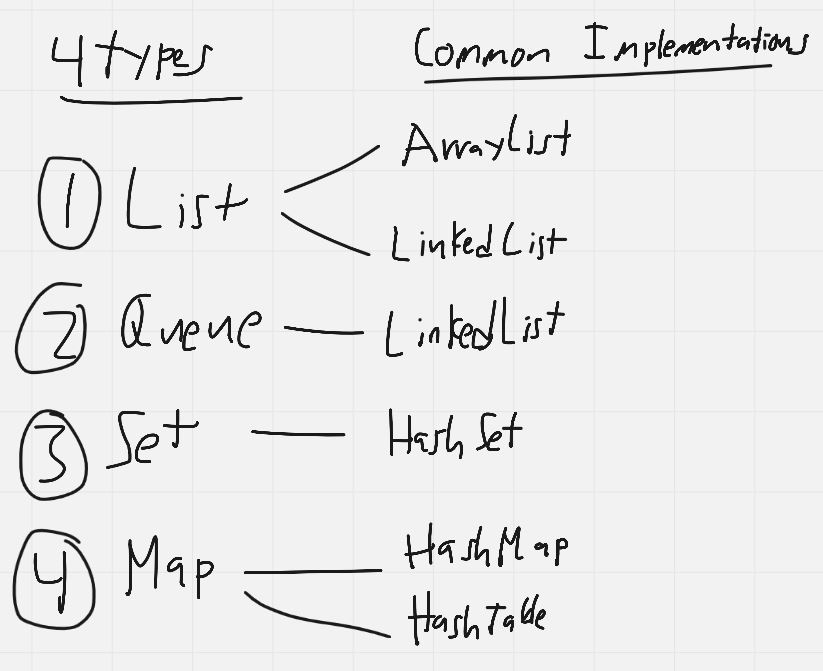 4 types
Common Implementations
1 List
ArrayList
LinkedList
2 Queue
LinkedList
3 Set
HashSet
4 Map
HashMap
HashTable